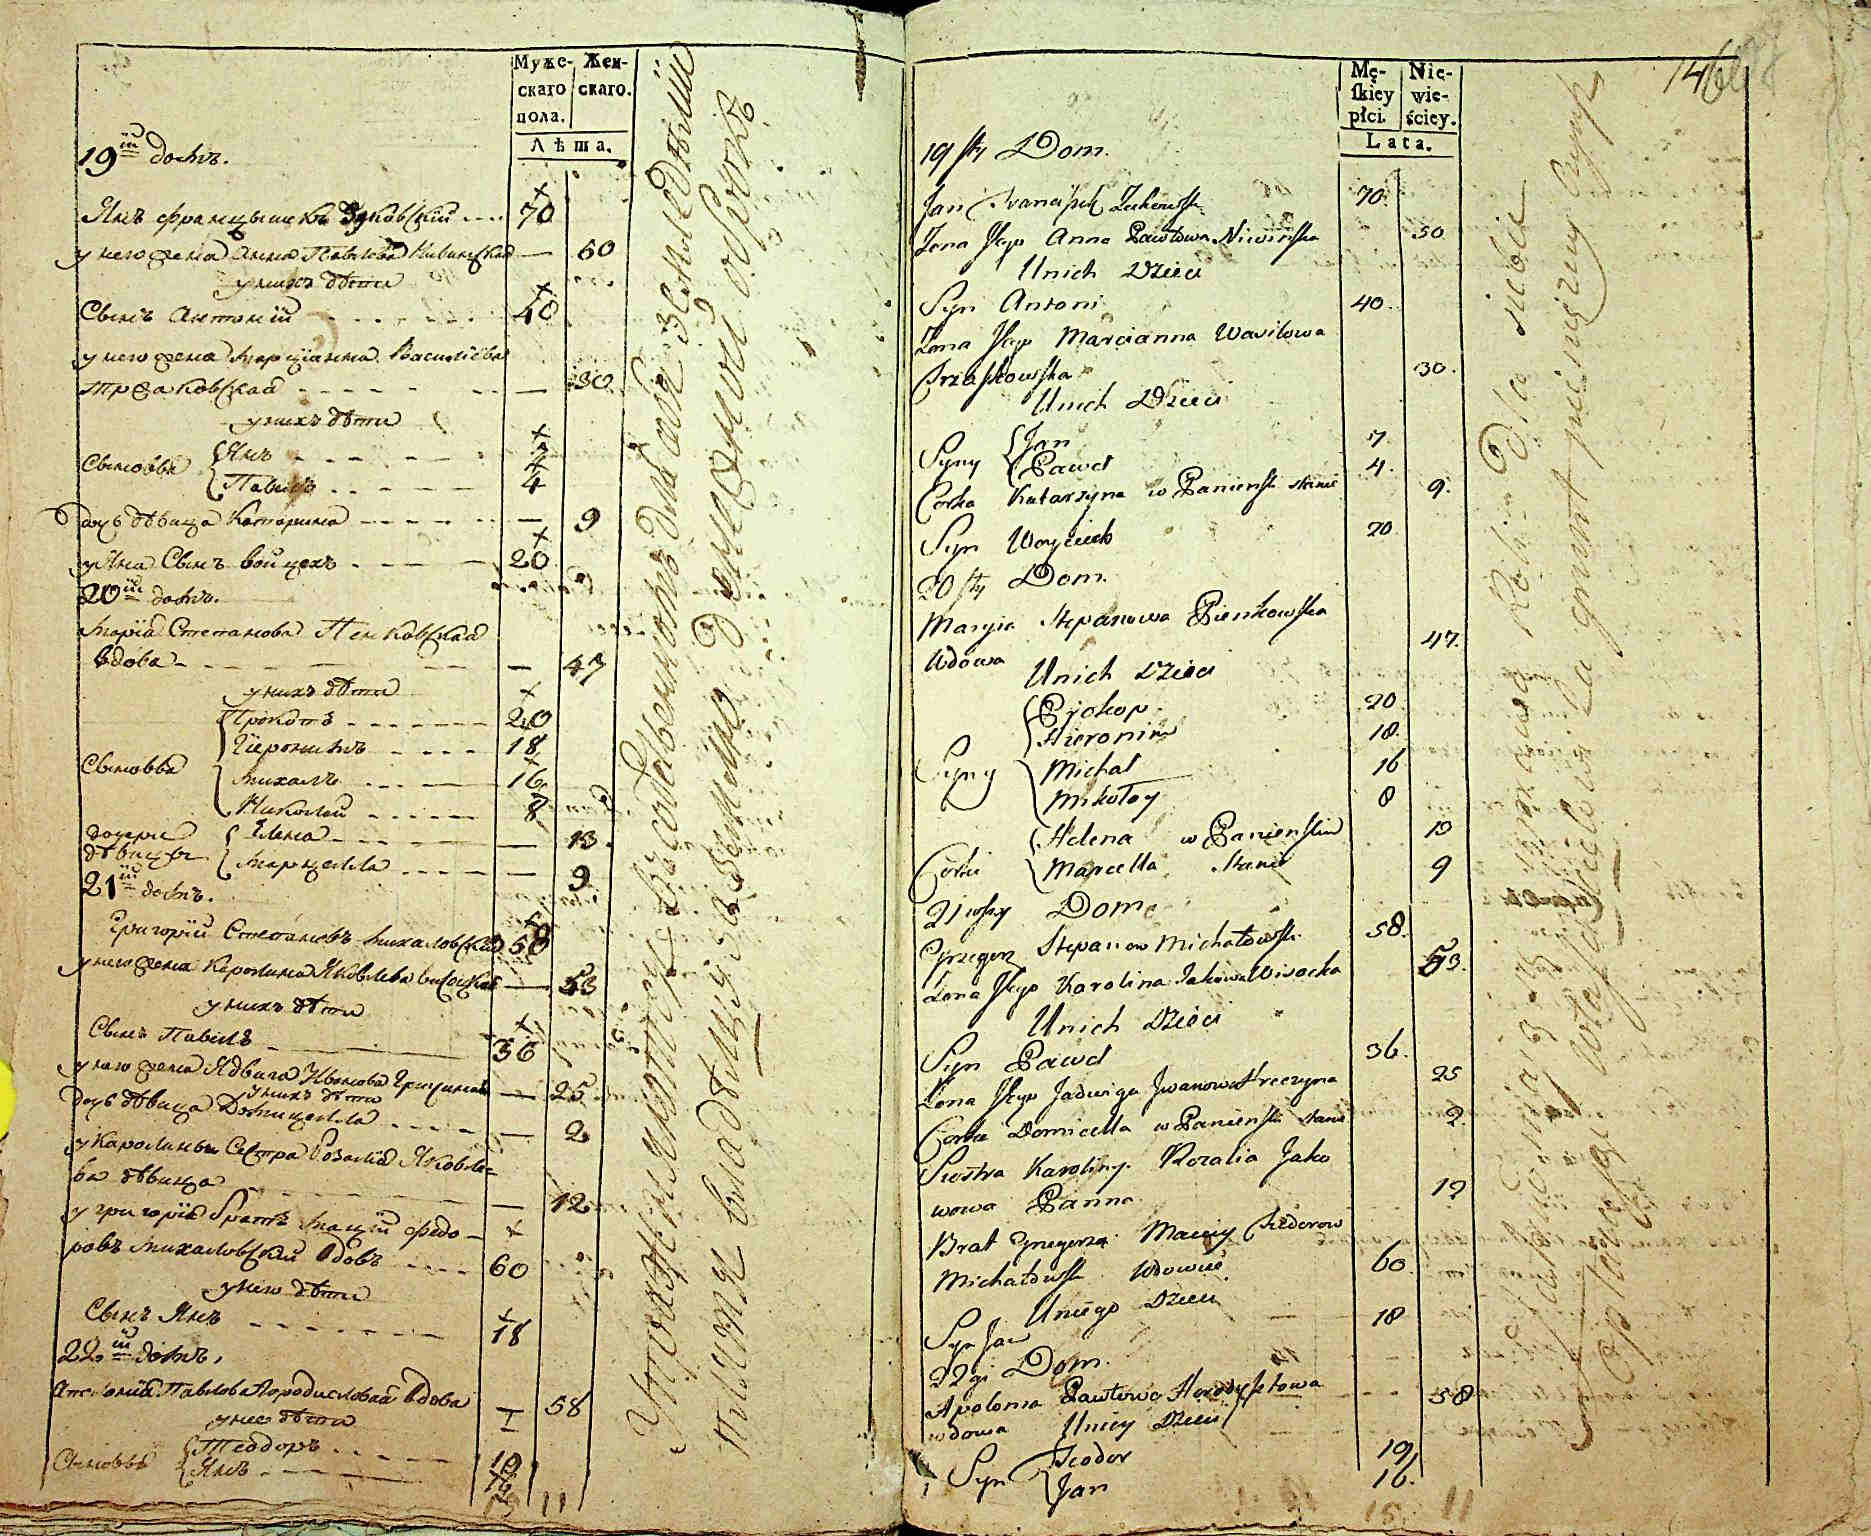 Муже-
скаго
пола.
Жен-
скаго.
Лѣта.
19ій домъ.
Янъ Францышекъ Зуковскій 70
у него жена Анна Павлова Нивинская — 60
у нихъ дѣти
Сынъ Антоній 40
у него жена Марціанна Василіева
Тржаковская — 30
у нихъ дѣти
Сыновья Янъ 7
Павелъ 4
Дочь дѣвица Катарина — 9
у Яна Сынъ Войцехъ 20
20ій домъ.
Марія Степанова Пенковская
вдова — 47
у нихъ дѣти
Прокопъ 20
Іеронимъ 18
Сыновья
Михалъ 16
Николай 8
дочери
дѣвицы
Елена — 13
Марцелла — 9
21ій домъ.
Григорій Степановъ Михаловскій 58
у него жена Каролина Яковлева Висоцкая — 53
у нихъ дѣти
Сынъ Павелъ 36
у него жена Ядвига Иванова — 25
у нихъ дѣти
дочь дѣвица Домицелла — 2
у Каролины Сестра Розалія Яковле-
ва дѣвица — 12
у Григорія братъ Мацій Федо-
ровъ Михаловскій вдовъ 60
у него дѣти
Сынъ Янъ 18
22ій домъ.
Аполонія Павлова вдова — 58
у нее дѣти
Сыновья Теодоръ 19
Янъ 16
11
въ собственномъ для себя земледѣліи
владѣльцу за землю денежной оброкъ
146
Mę-
skiey
płci.
Nie-
wie-
ściey.
Lata.
19sty Dom.
Jan Franciszek Zukowski 70.
Zona Jego Anna Pawłowa Niwinska 50
Unich Dzieci
Syn Antoni 40.
Zona Jego Marcianna Wasilowa
Trzaskowska 30.
Unich Dzieci
Syny Jan 7.
Paweł 4.
Corka Katarzyna w Panienski stanie 9.
Syn Woyciech 20
20sty Dom.
Maryia Stepanowa Pienkowska
Wdowa 47.
Unich Dzieci
Prokop 20
Hieronim 18.
Syny
Michał 16
Mikołay 8
Helena w Panienskim 13
Corki Marcella Stanie 9
21wszy Dom
Grzegorz Stepanow Michałowski 58.
Zona Jego Karolina Jakowa Wisocka 53.
Unich Dzieci
Syn Paweł 36.
Zona Jego Jadwiga Jwanowa 25
Corka Domicella w Panienski stanie 2.
Siostra Karoliny Rozalia Jako
wowa Panna 12
Brat Grzegorza Maciey Fiedorow
Michałowski Wdowiec 60.
Uniego Dzieci
Syn Jan 18
22gi Dom.
Apolonia Pawłowa Horodysztowa 58
wdowa Uniey Dzieci
Syn Teodor 19
Jan 16.
15 11
dla siebie
za grunt pieniężny Czynsz